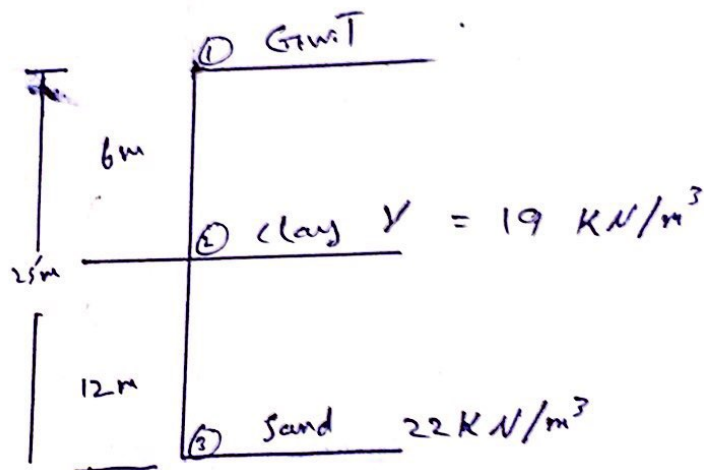 ① GWT
6m
② Clay γ = 19 KN/m³
25m
12m
③ Sand 22 KN/m³